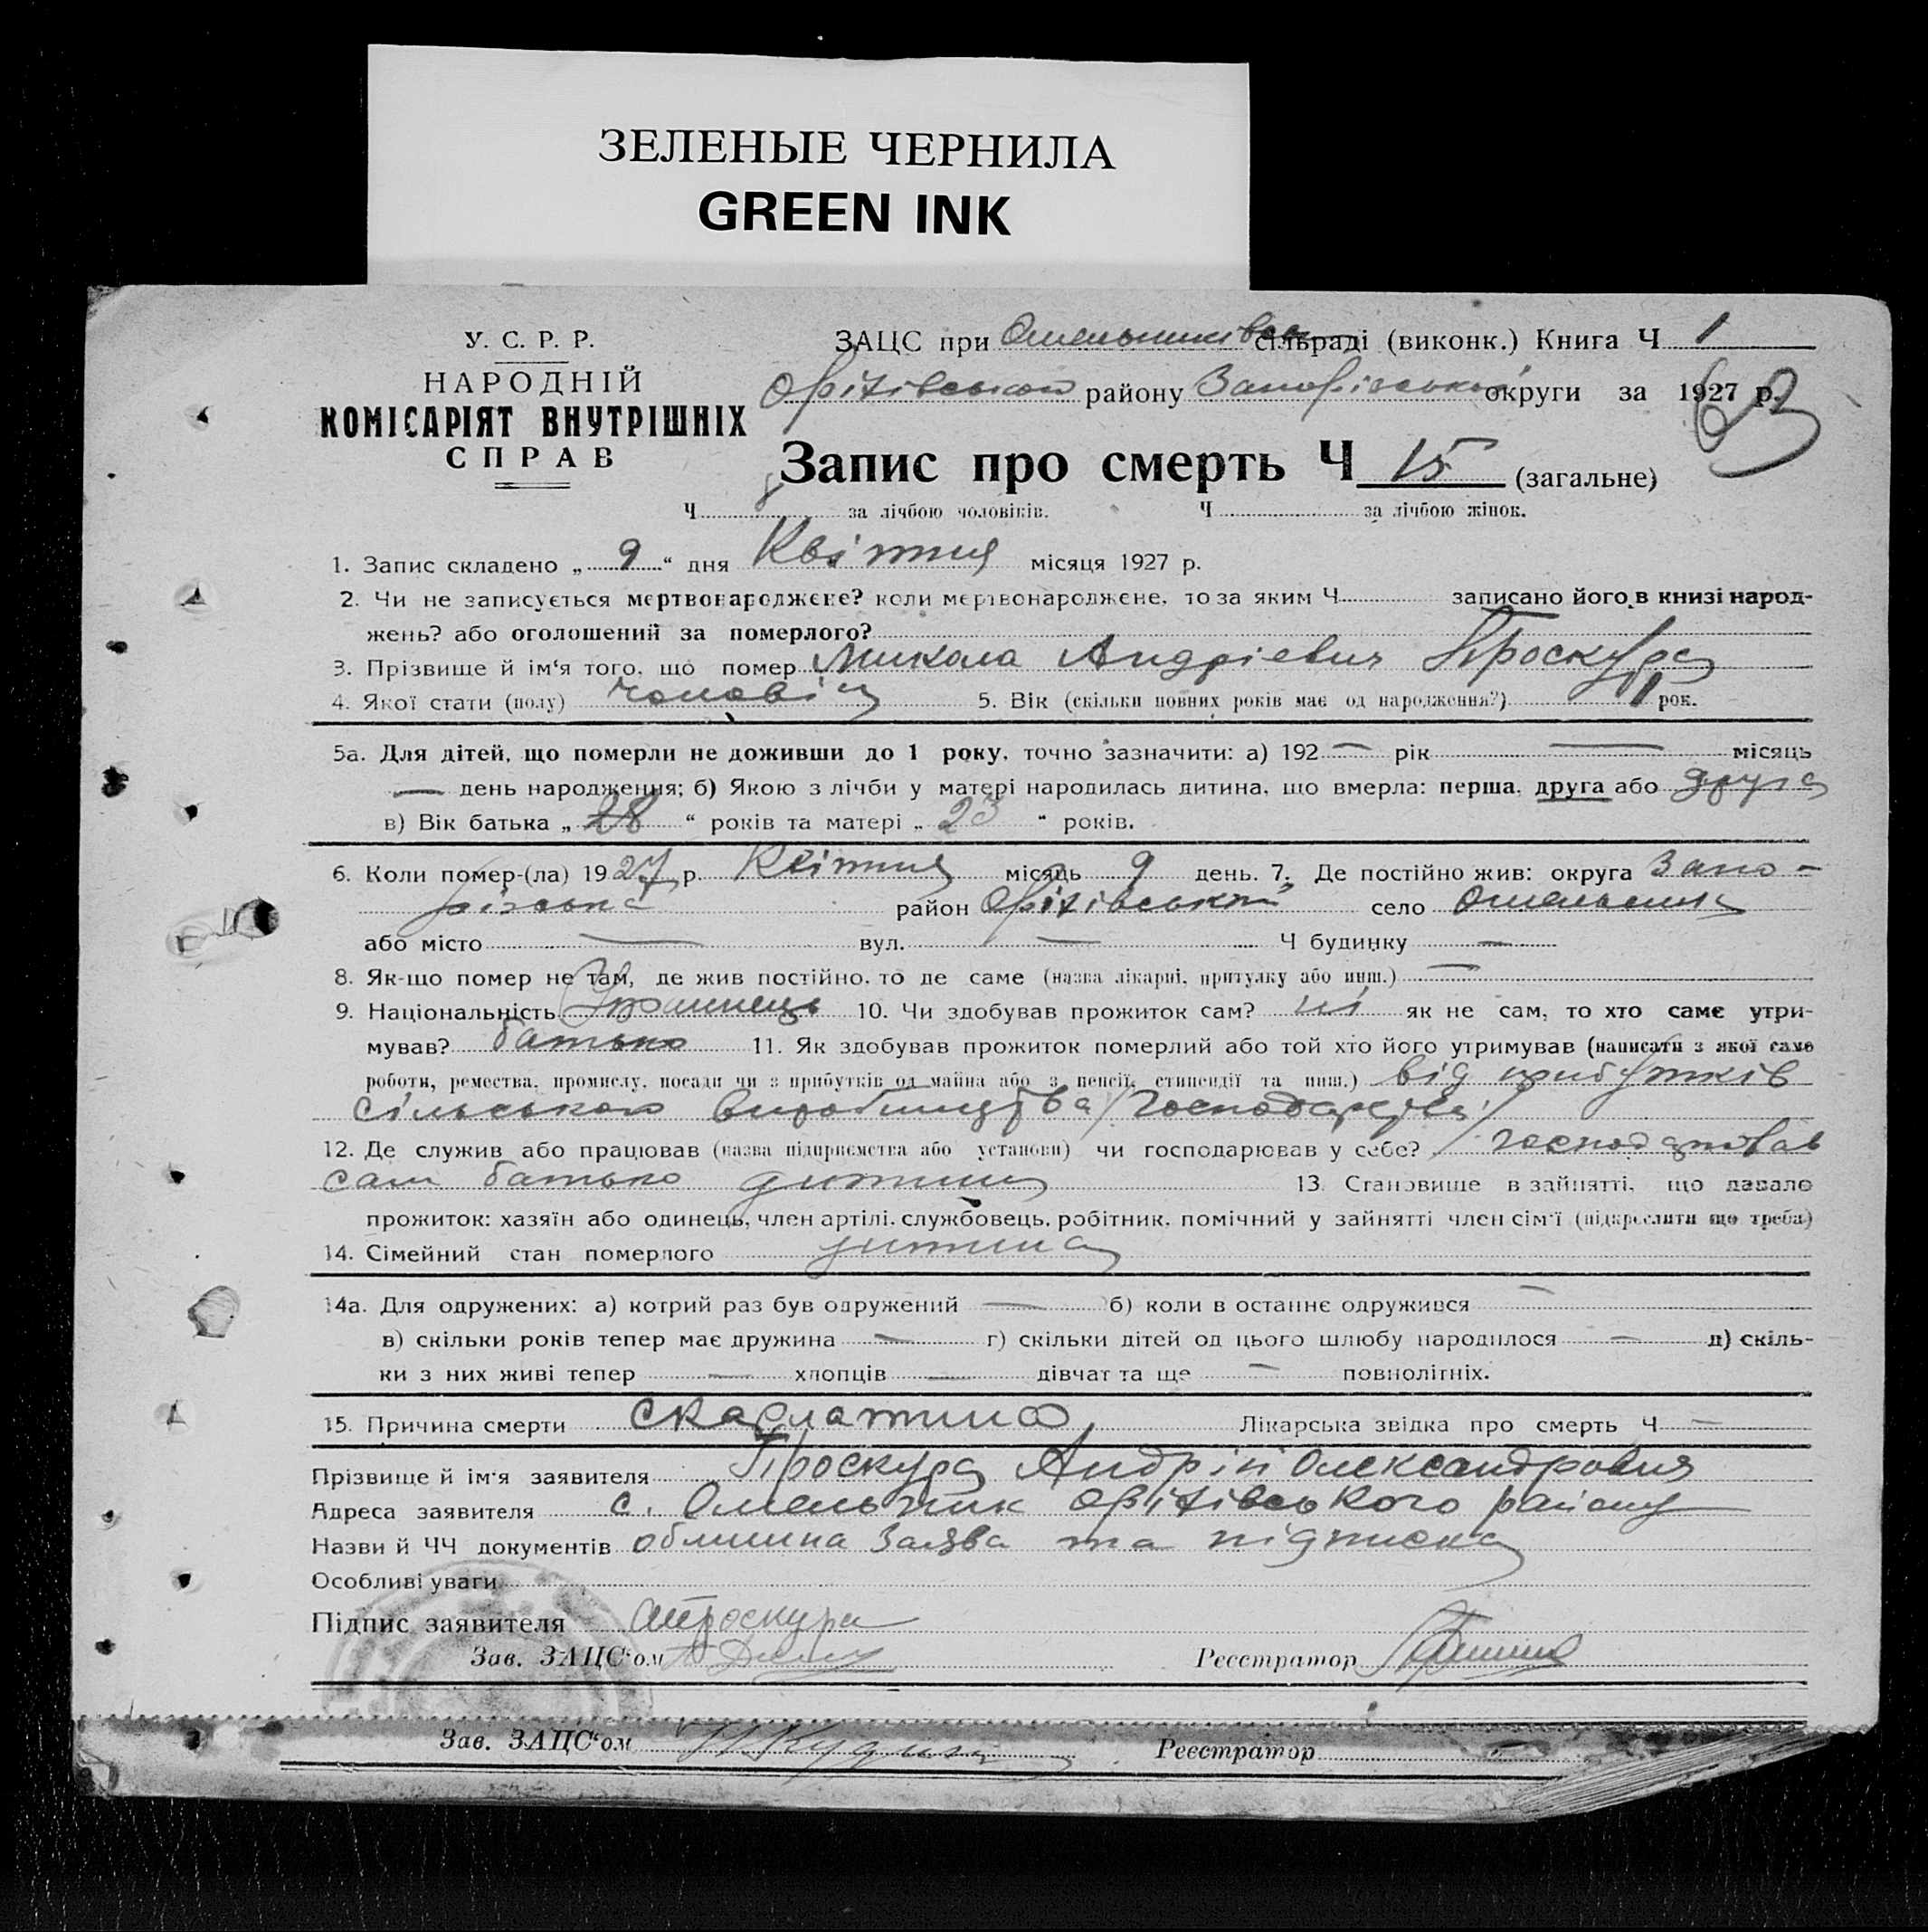 ЗЕЛЕНЫЕ ЧЕРНИЛА
GREEN INK
У. С. Р. Р.
НАРОДНІЙ
КОМІСАРІЯТ ВНУТРІШНІХ
СПРАВ
ЗАЦС при Омельниківськ сільраді (виконк.) Книга Ч 1
Оріхівського району Запорізської округи за 1927 р.
63
Запис про смерть Ч 15 (загальне)
Ч 8 за лічбою чоловіків. Ч за лічбою жінок.
1. Запис складено „ 9 “ дня Квітня місяця 1927 р.
2. Чи не записується мертвонароджене? коли мертвонароджене, то за яким Ч записано його в книзі народ-
жень? або оголошений за померлого?
3. Прізвище й ім‘я того, що помер Микола Андрієвич Проскура
4. Якої стати (полу) чоловіч 5. Вік (скільки повних років має од народження?) 1 рок.
5а. Для дітей, що померли не доживши до 1 року, точно зазначити: а) 192 — рік — місяць
— день народження; б) Якою з лічби у матері народилась дитина, що вмерла: перша, друга або друга
в) Вік батька „ 28 “ років та матері „ 23 “ років.
6. Коли помер-(ла) 1927 р. Квітня місяць 9 день. 7. Де постійно жив: округа Запо-
різська район Оріхівський село Омельник
або місто — вул. — Ч будинку —
8. Як-що помер не там, де жив постійно, то де саме (назва лікарні, притулку або инш.) —
9. Національність Українець 10. Чи здобував прожиток сам? ні як не сам, то хто саме утри-
мував? батько 11. Як здобував прожиток померлий або той хто його утримував (написати з якої саме
роботи, ремества, промислу, посади чи з прибутків од майна або з пенсії, стипендії та инш.) від прибутків
сільського виробництва /господарства/
12. Де служив або працював (назва підприємства або установи) чи господарював у себе? господарював
сам батько дитини 13. Становище в зайнятті, що давало
прожиток: хазяїн або одинець, член артілі, службовець, робітник, помічний у зайнятті член сім‘ї (підкреслити що треба)
14. Сімейний стан померлого дитина
14а. Для одружених: а) котрий раз був одружений — б) коли в останнє одружився —
в) скільки років тепер має дружина — г) скільки дітей од цього шлюбу народилося — д) скіль-
ки з них живі тепер — хлопців — дівчат та ще — повнолітніх.
15. Причина смерти скарлатина, Лікарська звідка про смерть Ч —
Прізвище й ім‘я заявителя Проскура Андрій Олександрович
Адреса заявителя с. Омельник Оріхівського району
Назви й ЧЧ документів заява та підписка
Особливі уваги
Підпис заявителя АПроскура
Зав. ЗАЦС‘ом Реєстратор
Зав. ЗАЦС‘ом Реєстратор